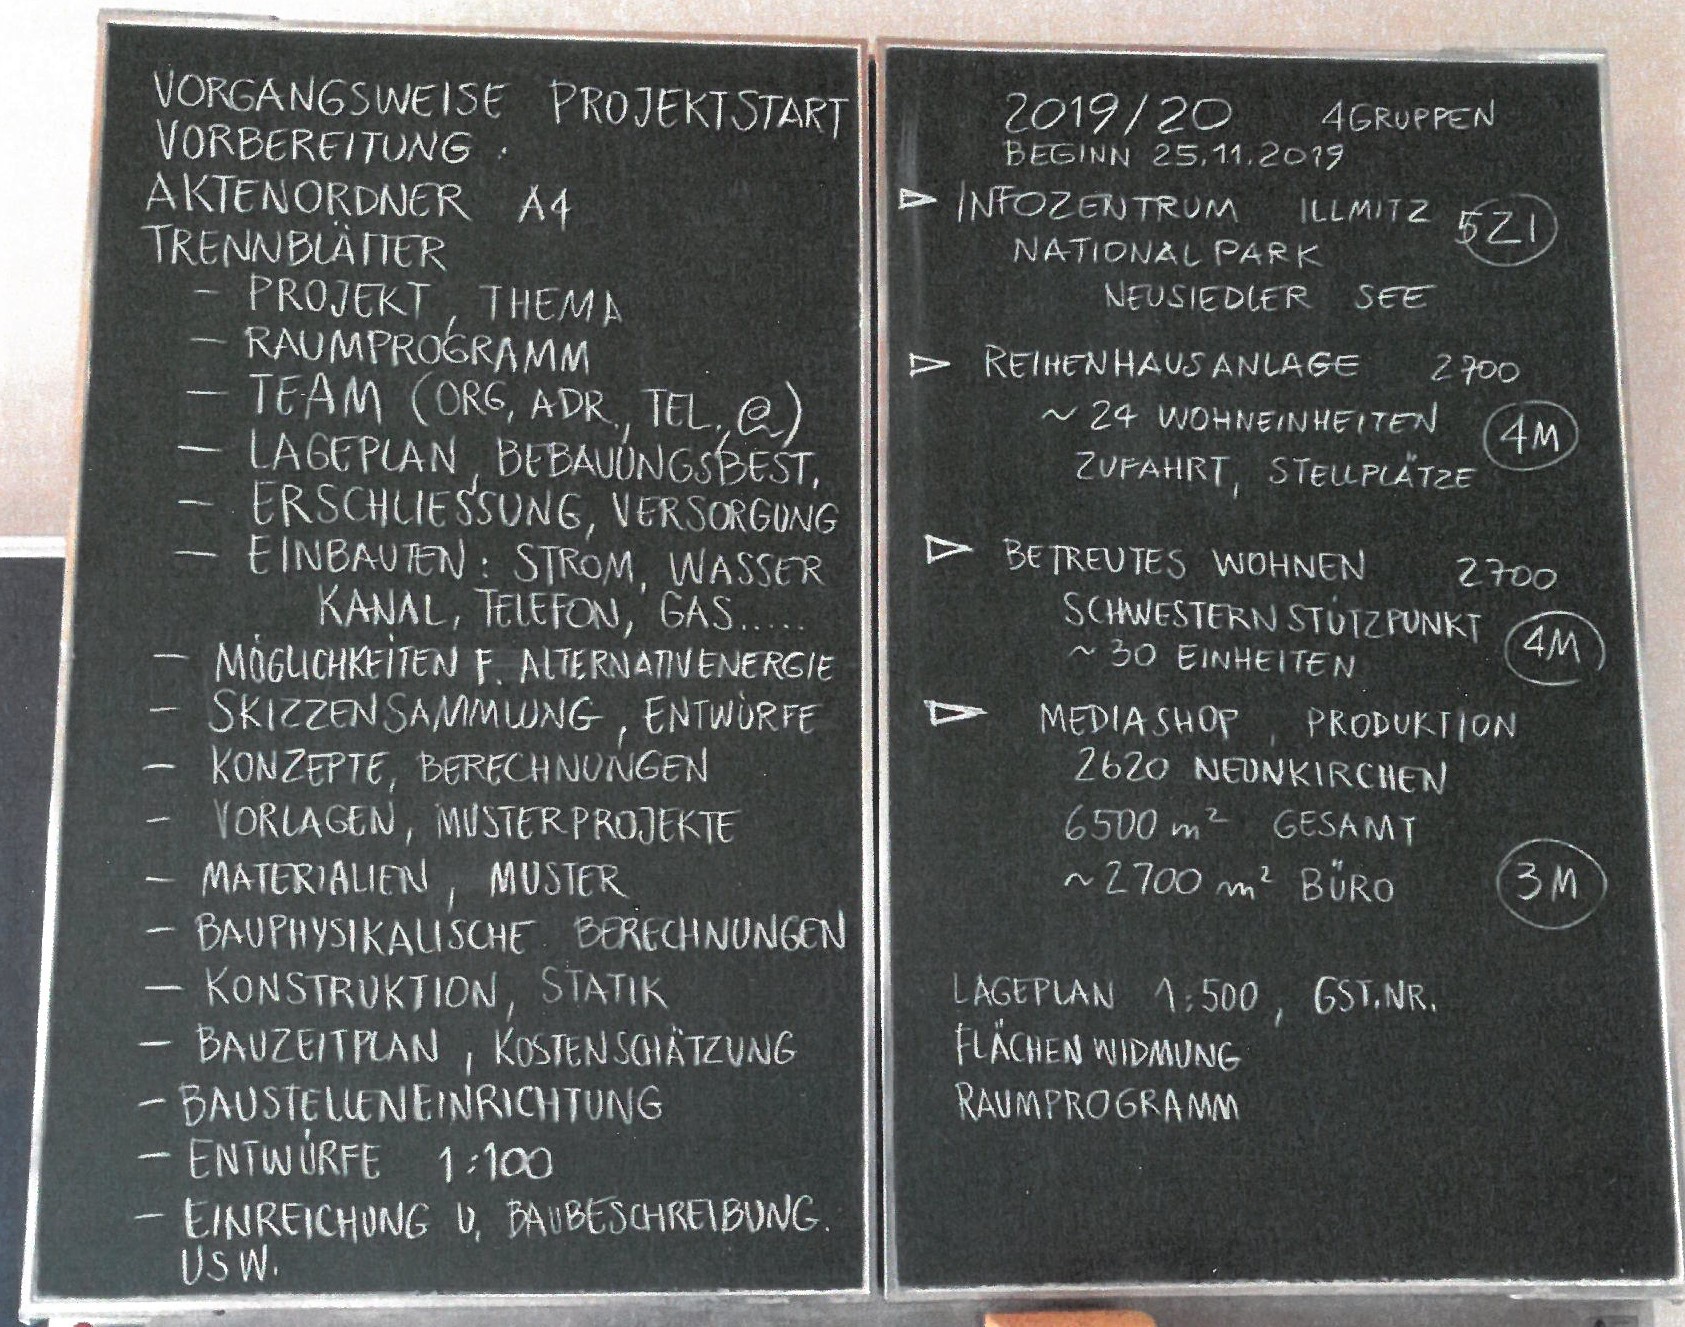 VORGANGSWEISE PROJEKTSTART
VORBEREITUNG.
AKTENORDNER A4
TRENNBLÄTTER
- PROJEKT, THEMA
- RAUMPROGRAMM
- TEAM (ORG, ADR., TEL., @)
- LAGEPLAN, BEBAUUNGSBEST.
- ERSCHLIESSUNG, VERSORGUNG
- EINBAUTEN: STROM, WASSER
KANAL, TELEFON, GAS.....
- MÖGLICHKEITEN F. ALTERNATIVENERGIE
- SKIZZENSAMMLUNG, ENTWÜRFE
- KONZEPTE, BERECHNUNGEN
- VORLAGEN, MUSTERPROJEKTE
- MATERIALIEN, MUSTER
- BAUPHYSIKALISCHE BERECHNUNGEN
- KONSTRUKTION, STATIK
- BAUZEITPLAN, KOSTENSCHÄTZUNG
- BAUSTELLENEINRICHTUNG
- ENTWÜRFE 1:100
- EINREICHUNG U. BAUBESCHREIBUNG.
USW.
2019/20 4GRUPPEN
BEGINN 25.11.2019
▷ INFOZENTRUM ILLMITZ 5Z1
NATIONALPARK
NEUSIEDLER SEE
▷ REIHENHAUSANLAGE 2700
~ 24 WOHNEINHEITEN 4M
ZUFAHRT, STELLPLÄTZE
▷ BETREUTES WOHNEN 2700
SCHWESTERNSTÜTZPUNKT 4M
~ 30 EINHEITEN
▷ MEDIASHOP, PRODUKTION
2620 NEUNKIRCHEN
6500 m² GESAMT
~ 2700 m² BÜRO 3M
LAGEPLAN 1:500, GST.NR.
FLÄCHENWIDMUNG
RAUMPROGRAMM